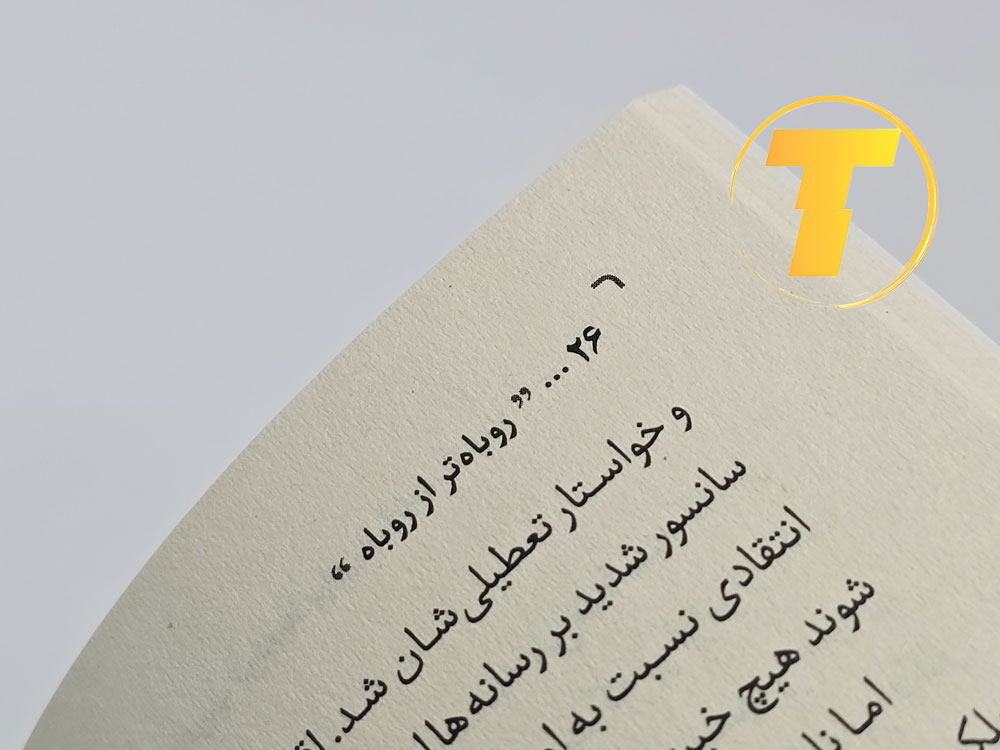 T
۲۶ ... „ روباه‌تر از روباه “
و خواستار تعطیلی شان شد.
سانسور شدید بر رسانه ها
انتقادی نسبت به
شوند هیچ
اما